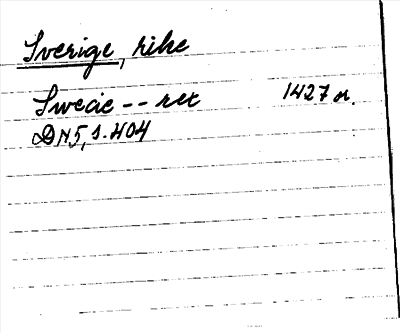 Sverige, rike
Swecie -- rex 1427 or.
DN 5, s. 404